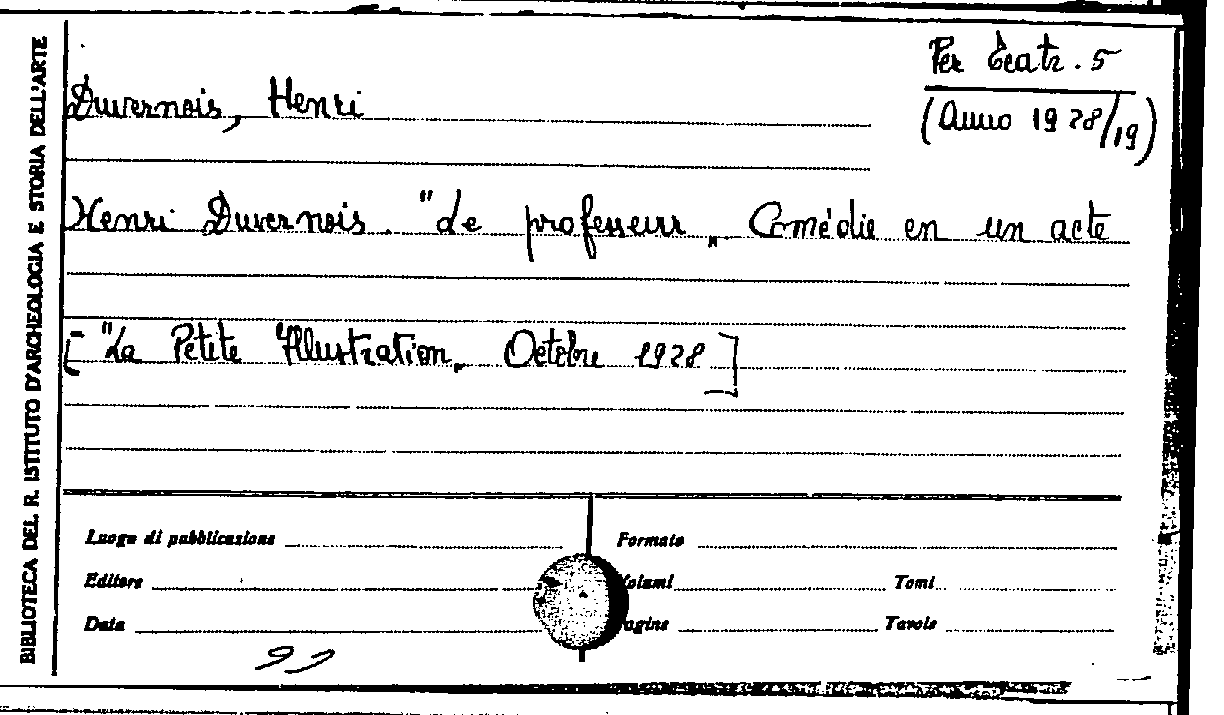 BIBLIOTECA DEL R. ISTITUTO D'ARCHEOLOGIA E STORIA DELL'ARTE
Per Teatr. 5
(Anno 1928/19)
Duvernois, Henri
Henri Duvernois. "Le professeur„ Comédie en un acte
["La Petite Illustration„ Octobre 1928]
Luogo di pubblicazione
Formato
Editore
Volumi
Tomi
Data
Pagine
Tavole